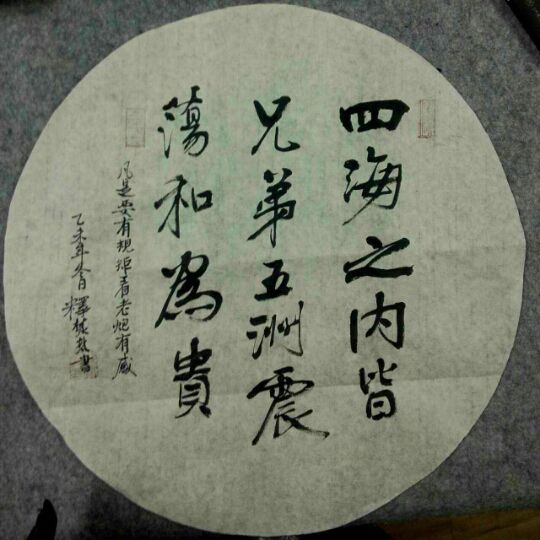 四海之内皆
兄弟五洲震
蕩和為貴
凡是要有規矩看老炮有感
乙未年冬月釋